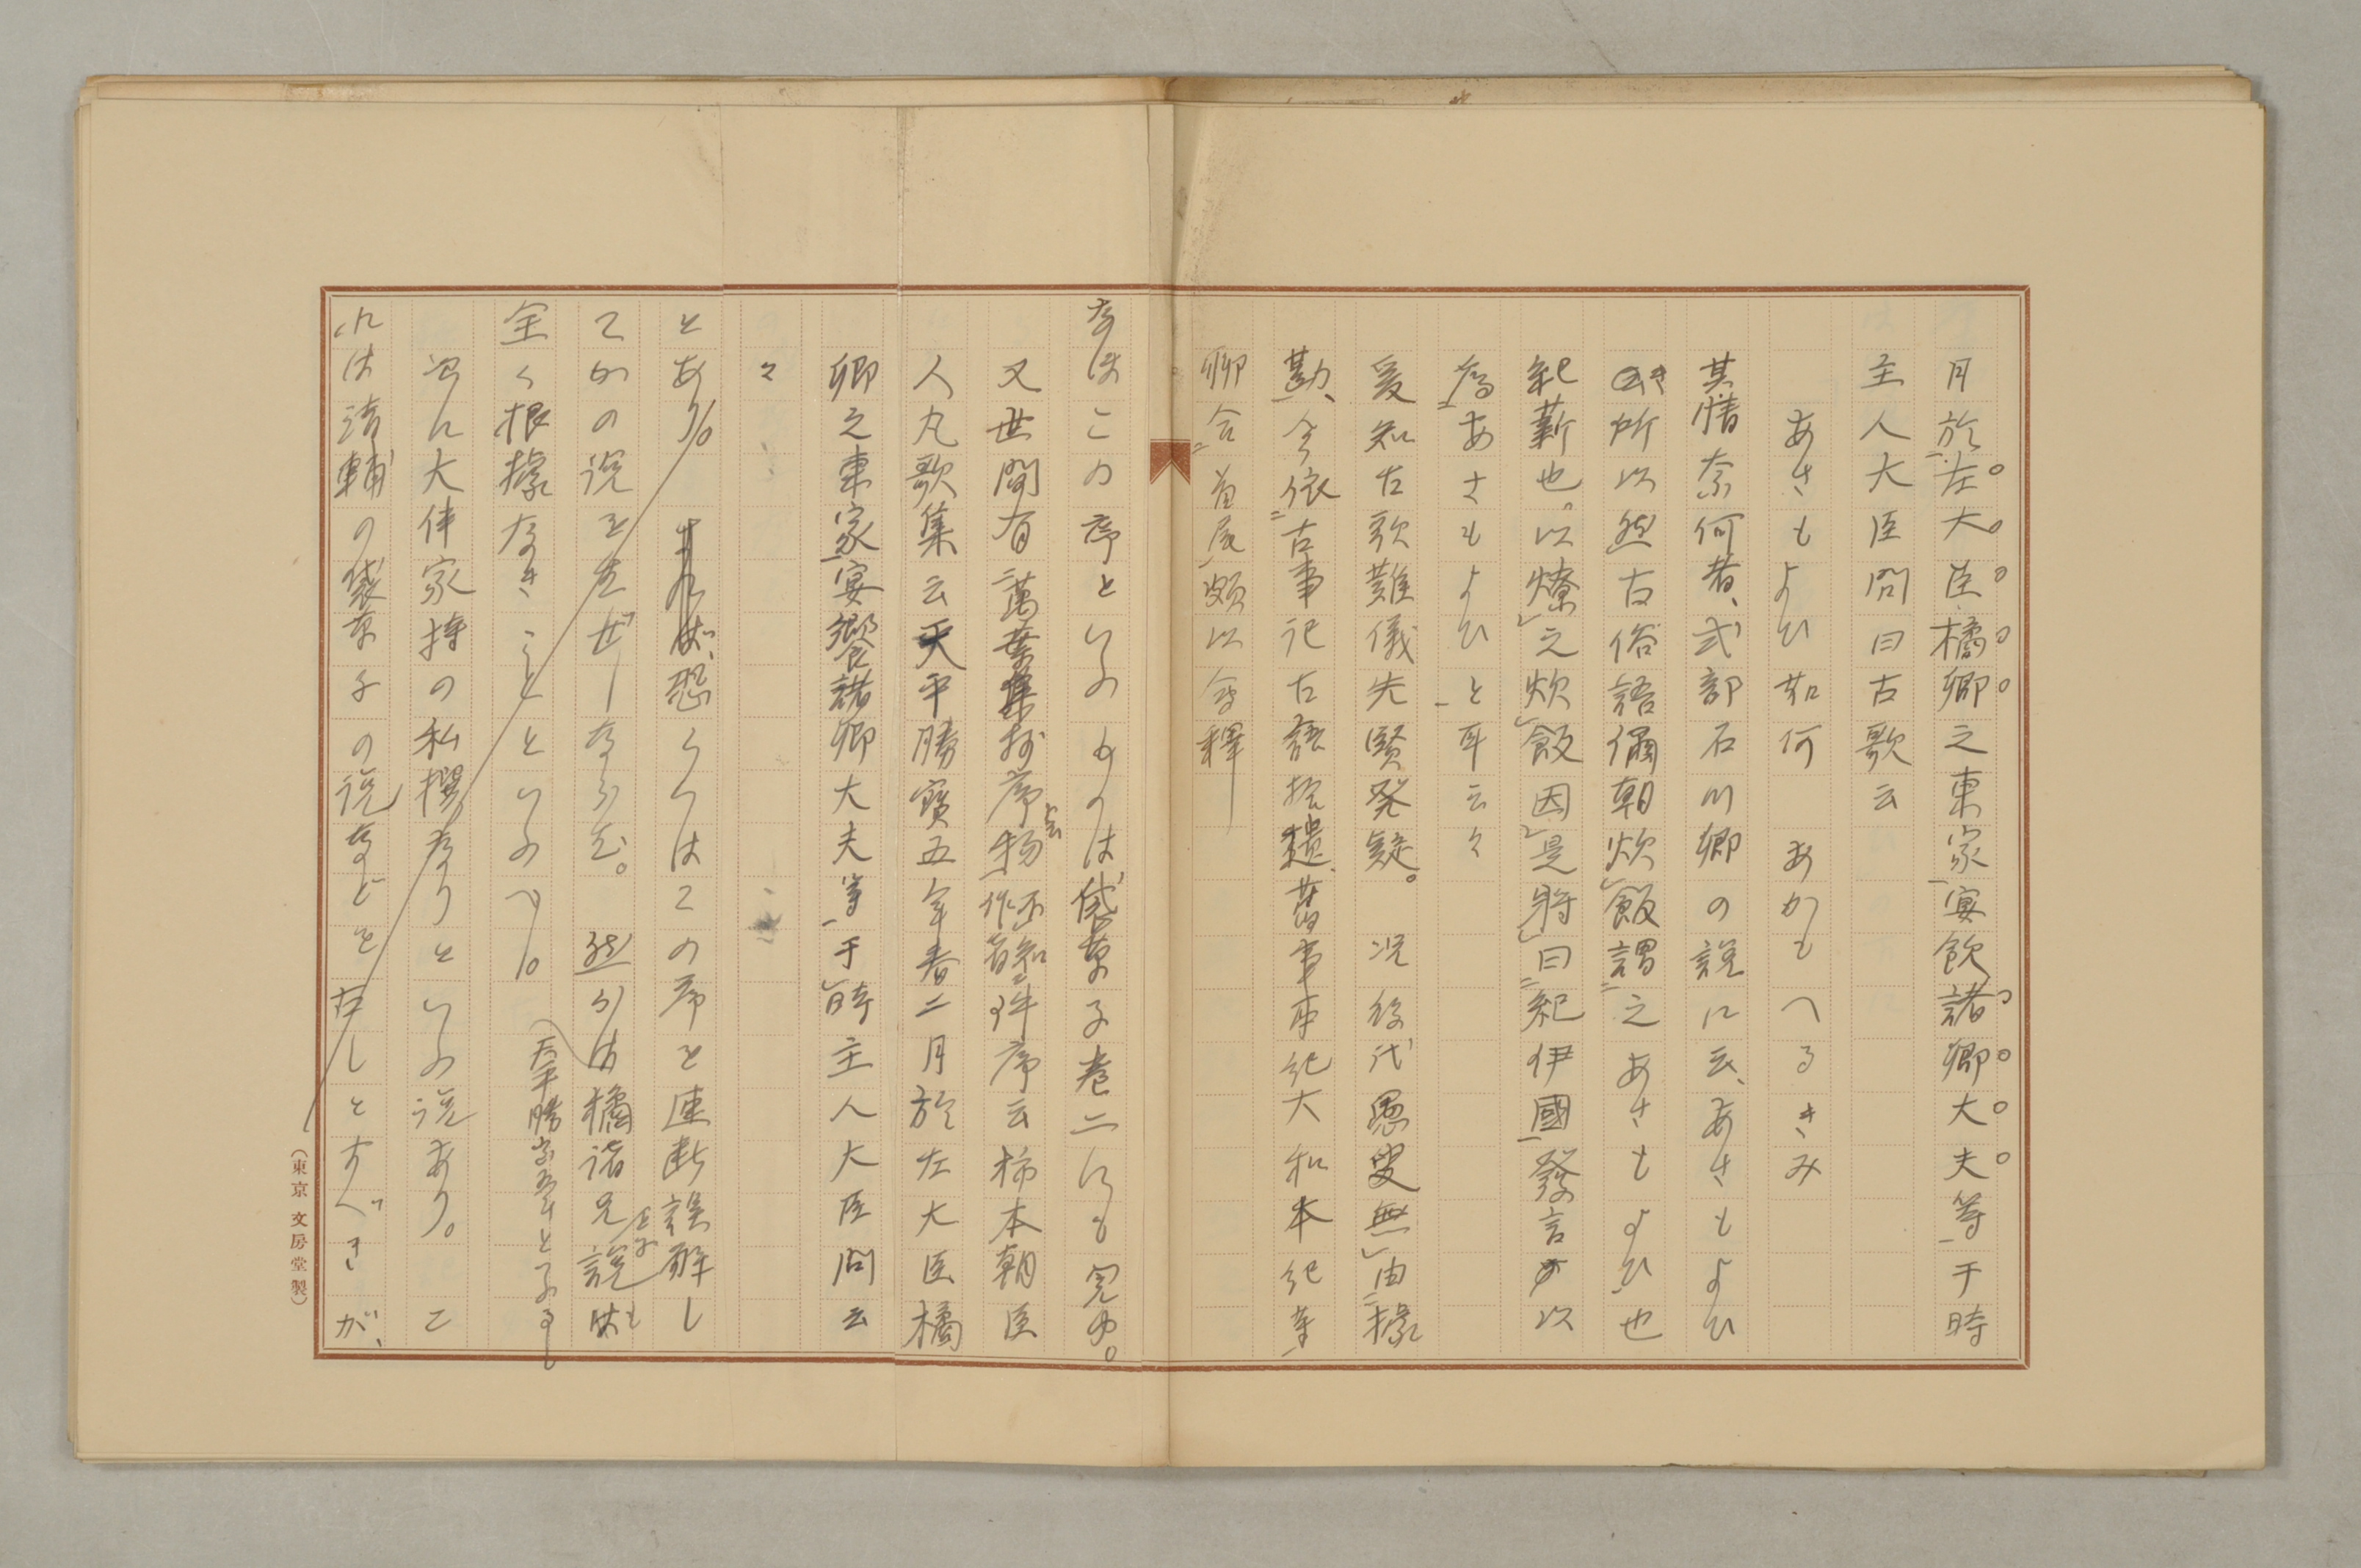 月於左大臣橘卿之東家宴飲諸卿大夫等于時
主人大臣問曰古歌云
あさもよひ如何　あかもへるきみ
其情奈何者、式部石川卿の説に云、あさもよひ
き所以然古俗語儞朝炊飯謂之あさもよひ也
紀薪也。以燎之炊飯因是将曰紀伊國發言以
為あさもよひと耳云々
爰知古歌難儀先賢発疑。況後代愚叟無由據
勘、今依古事記古語拾遺、旧事本紀大和本紀等
聊合首尾頗以会釋
なほこの序といふものは袋草子巻二にも見ゆ。
又世間有萬葉集抄序云物不知作者件序云柿本朝臣
人丸歌集云天平勝寶五年春二月於左大臣橘
卿之東家宴饗諸卿大夫等于時主人大臣問云
々
とあり。恐らくはこの序を速断誤解し
てかの説を生ぜしならむ。然らば橘諸兄とふ説も
全く根據なきことといふべし。（天平勝宝五年とある
次に大伴家持の私撰なりといふ説あり。こ
れは清輔の袋草子の説などを本しとすべきが、
（東京 文房堂製）